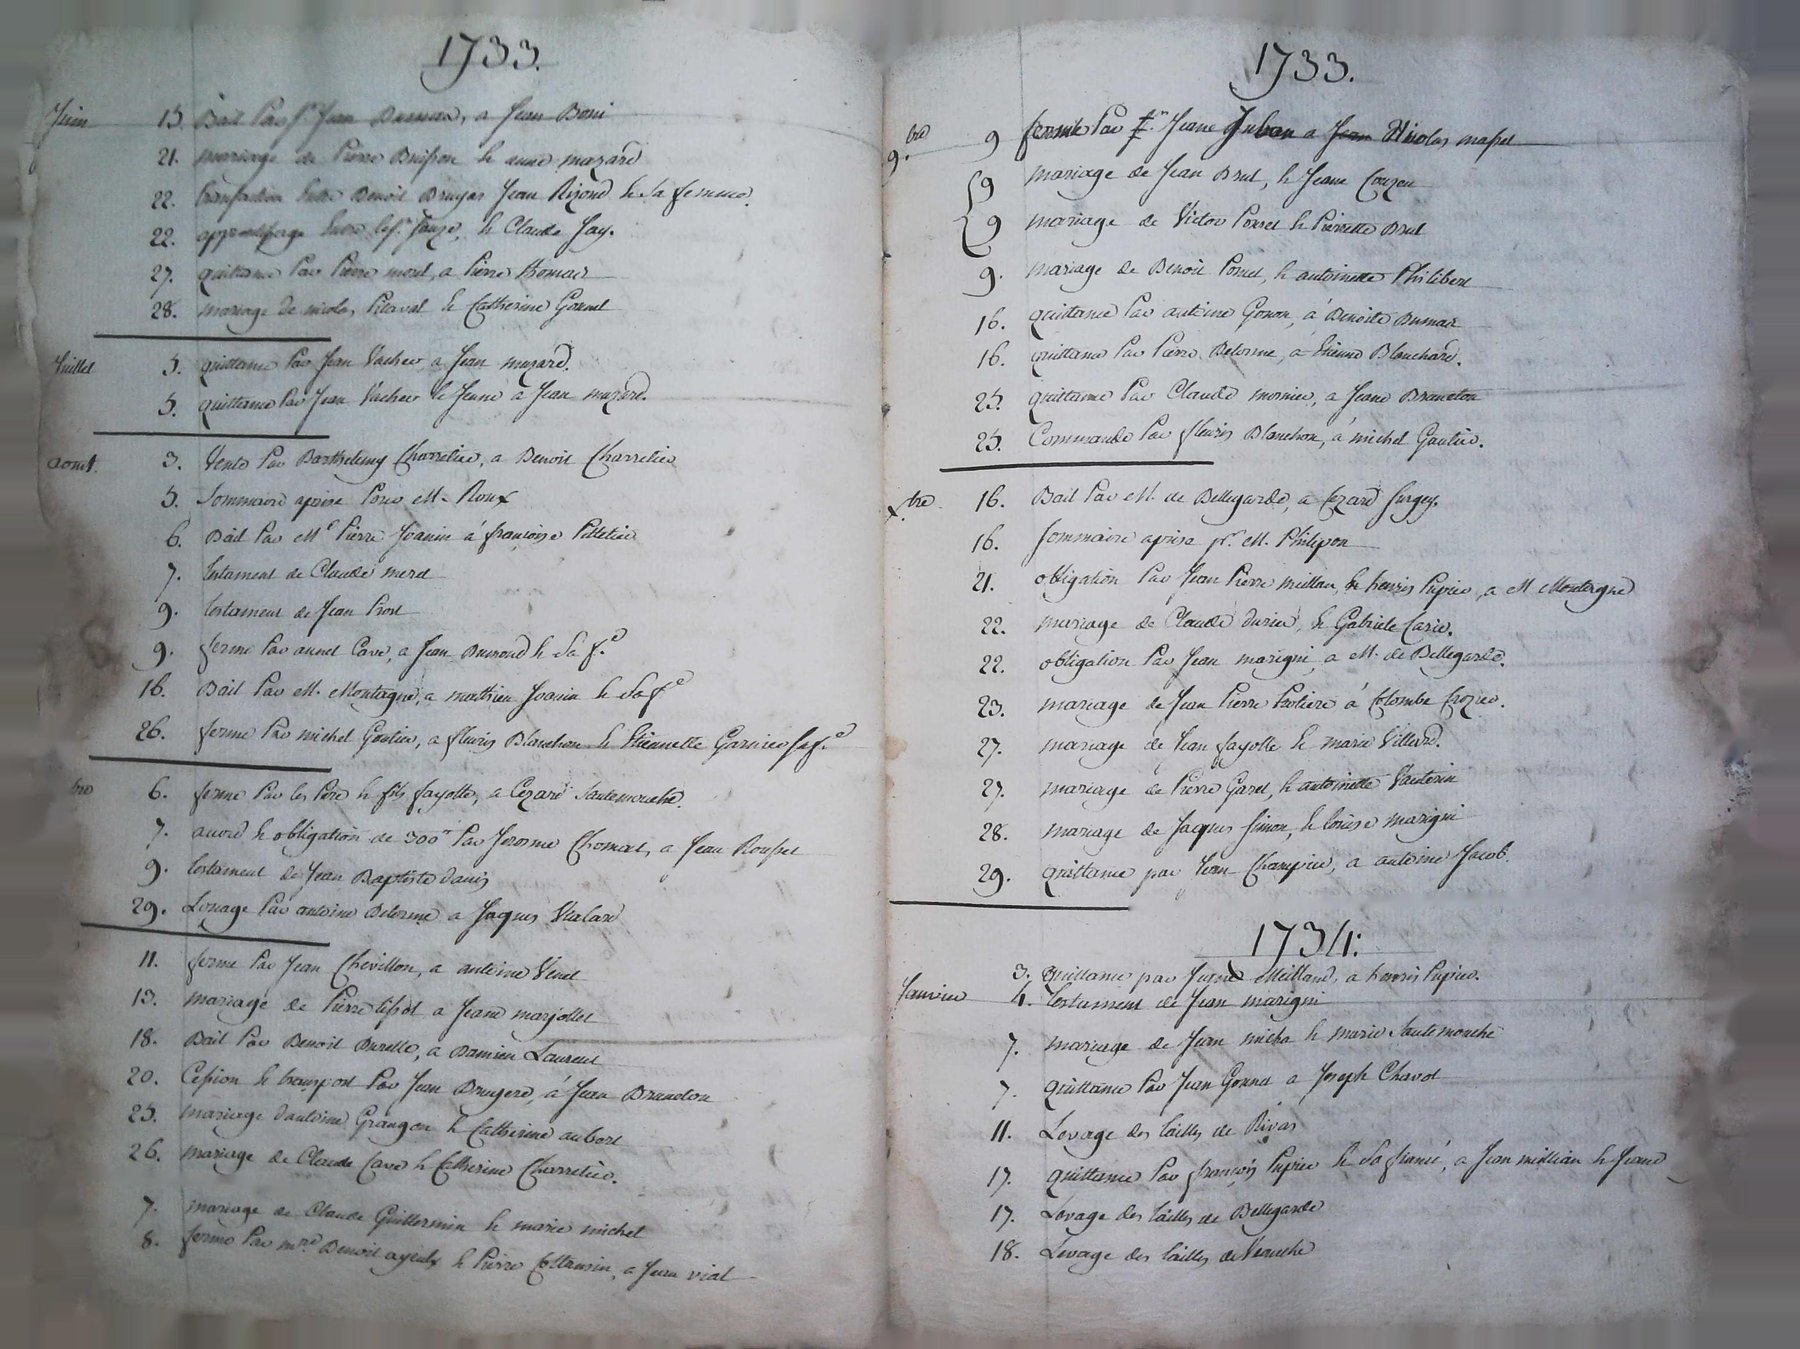 1733.
Juin 15. Bail Par Sr Jean Dumas, a Jean Boni
21. mariage de Pierre Buisson & anne mazard
22. transaction Entre Benoit Bruyas Jean Rizond & sa femme.
22. apprentissage Entre & Claude Jay.
27. quittance Par Pierre morel, a Pierre Thomas
28. mariage de nicolas Pitaval & Catherine Gonnet
Juillet 5. quittance Par Jean Vacher a Jean mazard.
5. quittance Par Jean Vacher le Jeune a Jean mazard.
aoust. 3. Vente Par Barthelemy Charretier, a Benoit Charretier
5. Sommaire aprise Pour M. Roux
6. Bail Par Me Pierre Joanin á françoise Pelletier
7. testament de Claude morel
9. testament de Jean Prost
9. ferme Par annet Cave, a Jean Dumond & sa fe
16. Bail Par M. Montagne, a mathieu Joanin & sa fe
26. ferme Par michel Goutier, a fleuris Blanchon & Etiennette Garnier sa fe
bre 6. ferme Par les Pere & fils fayolle, a Cezard Sautemouche.
7. accord & obligation de 300lt Par Jerosme Chomat, a Jean Rousset
9. testament de Jean Baptiste davis
29. Louage Par antoine Delorme a Jaques Vialard
11. ferme Par Jean Chevillon, a antoine Venet
13. mariage de Pierre tissot a Jeane marjollet
18. Bail Par Benoit Burelle, a Damien Laurent
20. Cession & transport Par Jean Bruyere, á Jean Brandon
25. mariage d'antoine Grangon & Catherine aubert
26. mariage de Claude Cave & Catherine Charretier.
7. mariage de Claude Guillermin & marie michel
8. ferme Par mre Benoit & Pierre Cottancin, a Jean vial
1733.
9.bre 9 ferme Par Jeane Juban a Jean Nicolas masset
9 mariage de Jean Brut, & Jeane Couzon
9 mariage de Victor Poncet & Pierrette Brut
9. mariage de Benoit Poncet, & antoinette Philibert
16. quittance Par antoine Gonon, á Benoite Dumas
16. quittance Par Pierre Delorme, a Etienne Blanchard.
25. quittance Par Claude mornier, a Jeane Brandon
25. Commande Par fleuris Blanchon, a michel Goutier.
x.bre 16. Bail Par M. de Bellegarde, a Cezard furgey.
16. Sommaire aprise pr. M. Philipon
21. obligation Par Jean Pierre millan, & henris Pupier, a M Montagne
22. mariage de Claude durieu, & Gabriele Carie.
22. obligation Par Jean marigni, a M. de Bellegarde.
23. mariage de Jean Pierre Protiere á Colombe Crozier.
27. mariage de Jean fayolle & marie Villerd.
27. mariage de Pierre Garet, & antoinette Vautorin
28. mariage de Jaques Simon & louise marigni
29. quittance par Jean Champier, a antoine Jacob.
1734:
3. quittance par Meilland, a henris Pupier.
Janvier 4. testament de Jean marigni
7. mariage de Jean micha & marie Sautemouche
7. quittance Par Jean Gonnet a Joseph Chavot
11. Levage des tailles de Rivas
17. quittance Par françois Pupier & sa fiancé, a Jean millian le Jeune
17. Levage des tailles de Bellegarde
18. Levage des tailles de Veauche